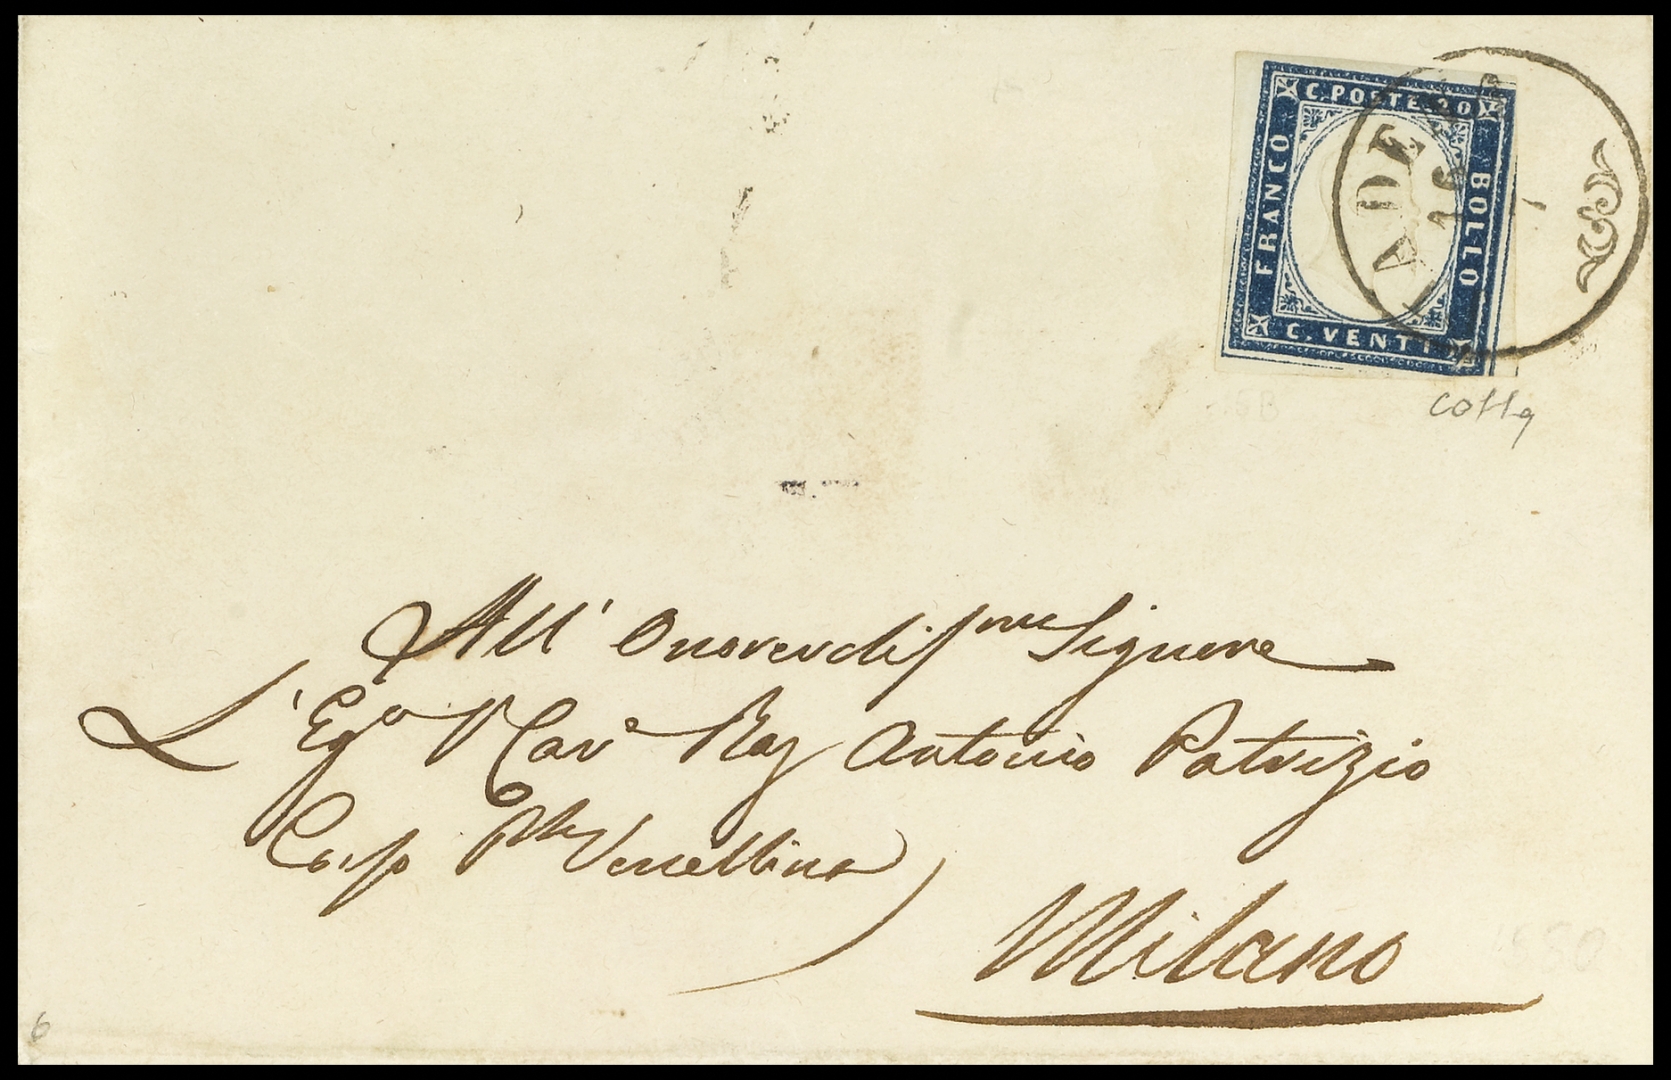 C. POSTE 20
FRANCO
BOLLO
C. VENTI
ADE
16
Colla
All' Onorevdiss.me Signore
L' Eg.o Cav.e Rag Antonio Patrizio
Corso P.ta Vercellina
Milano
6